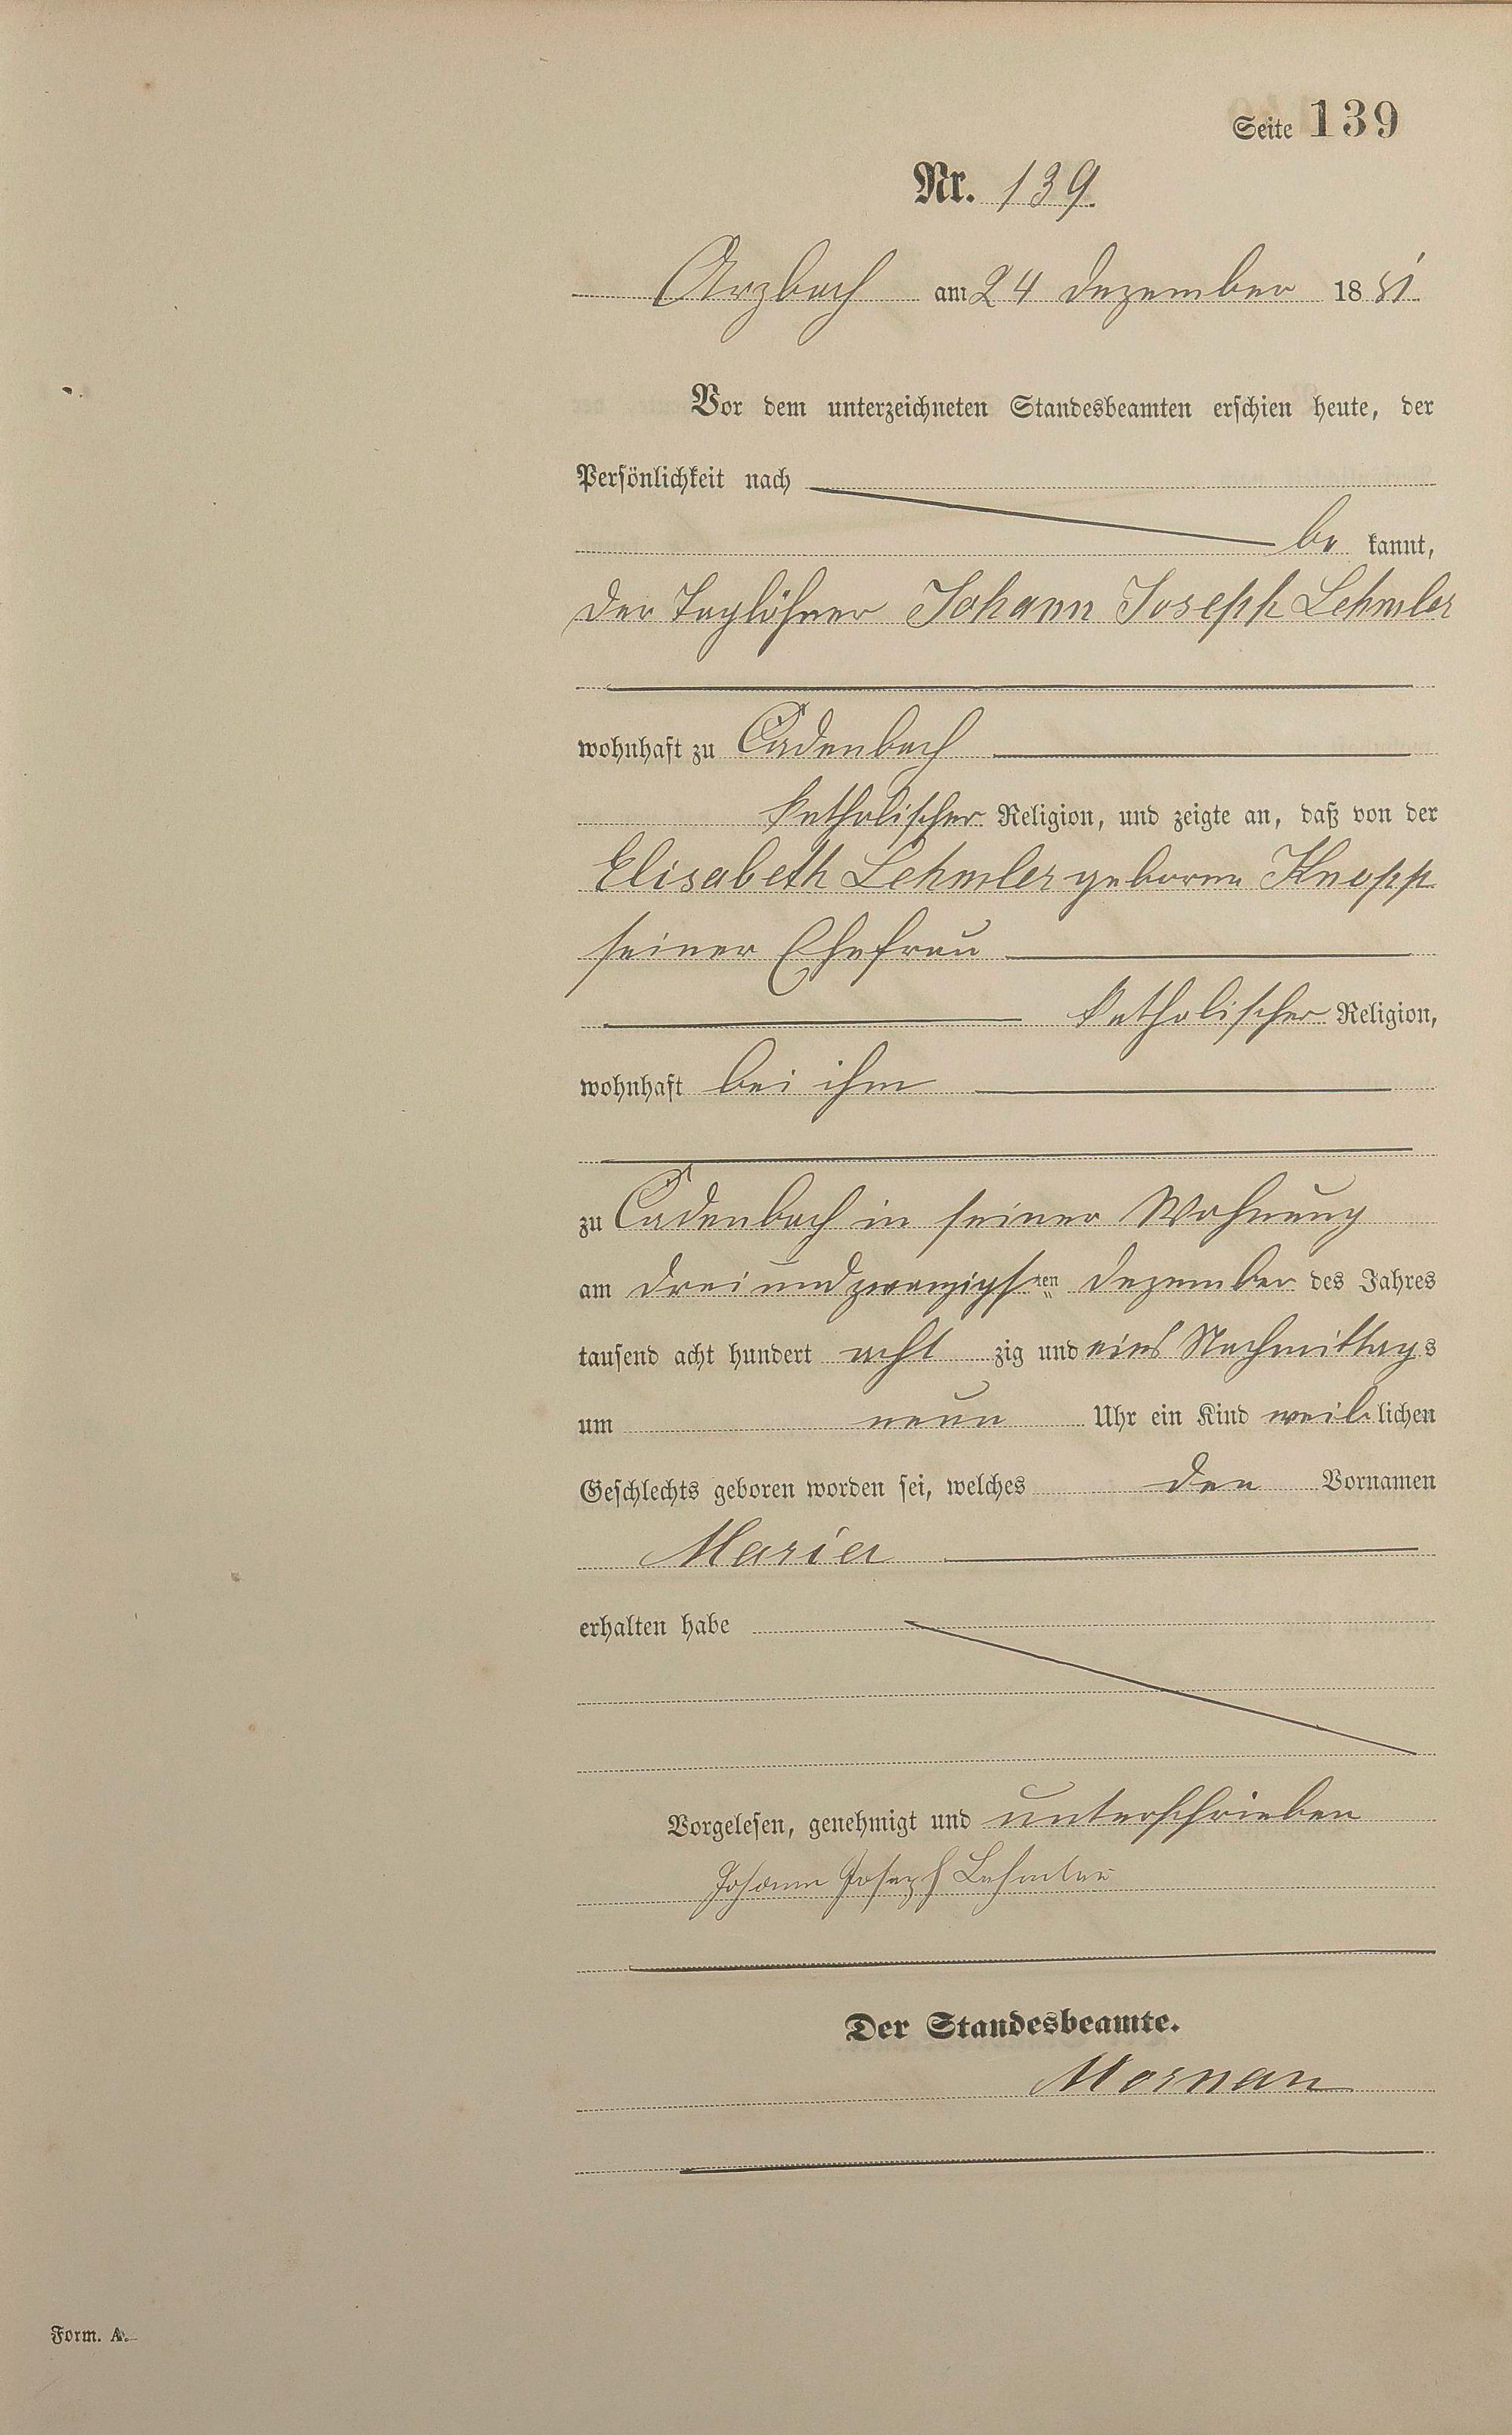 Seite 139
Nr. 139.
Arzbach am 24 Dezember 1881
Vor dem unterzeichneten Standesbeamten erschien heute, der
Persönlichkeit nach
be kannt,
der Taglöhner Johann Joseph Lehmler
wohnhaft zu Cadenbach
katholischer Religion, und zeigte an, daß von der
Elisabeth Lehmler geborne Knopp
seiner Ehefrau
katholischer Religion,
wohnhaft bei ihm
zu Cadenbach in seiner Wohnung
am dreiundzwanzigsten Dezember des Jahres
tausend acht hundert acht zig und eins Nachmittags
um neun Uhr ein Kind weiblichen
Geschlechts geboren worden sei, welches den Vornamen
Maria
erhalten habe
Vorgelesen, genehmigt und unterschrieben
Johann Joseph Lehmler
Der Standesbeamte.
Form. A.